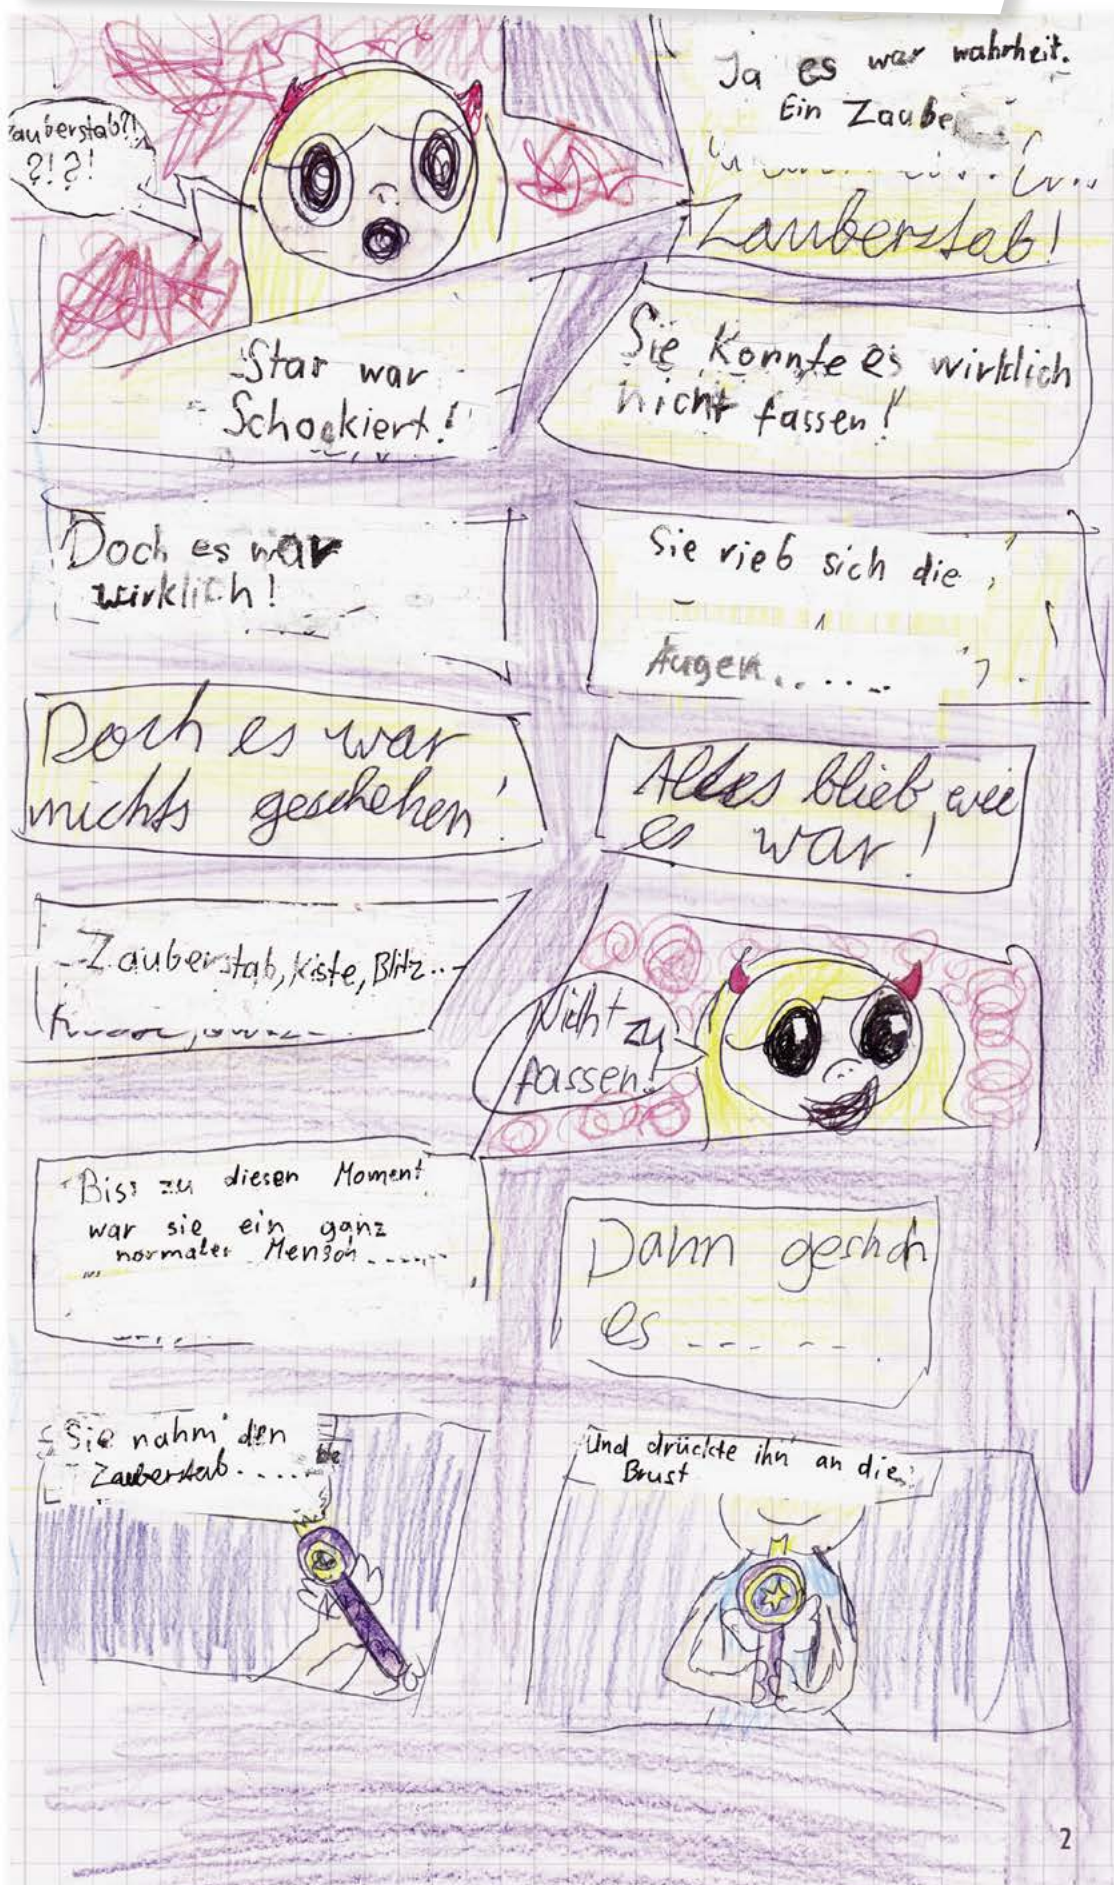 Zauberstab?!
?!?!
Ja es war wahrheit.
Ein Zaube
Zauberstab!
Star war
Schockiert!
Sie Konnte es wirklich
nicht fassen!
Doch es war
wirklich!
Sie rieb sich die
Augen......
Doch es war
nichts geschehen!
Alles blieb, wie
es war!
Zauberstab, Kiste, Blitz...
Nicht zu
fassen!
Biss zu diesen Moment
war sie ein ganz
normaler Mensch......
Dann geschah
es - - - - .
Sie nahm den
Zauberstab.....
Und drückte ihn an die
Brust
2